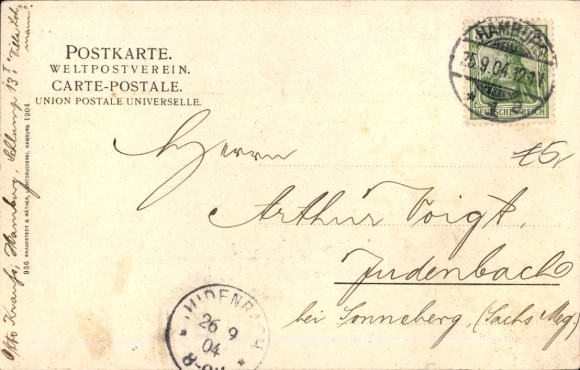 POSTKARTE.
WELTPOSTVEREIN.
CARTE-POSTALE.
UNION POSTALE UNIVERSELLE.
HAMBURG
25.9.04.
1
DEUTSCHES REICH
£5,
Herrn
Arthur Voigt,
Judenbach
bei Sonneberg, (Sachs. Meg.)
JUDENBACH
26 9
04
Otto Krauß, Hamburg, Schlump 13 I "Villa
936 KNACKSTEDT & NÄTHER, HAMBURG 1904